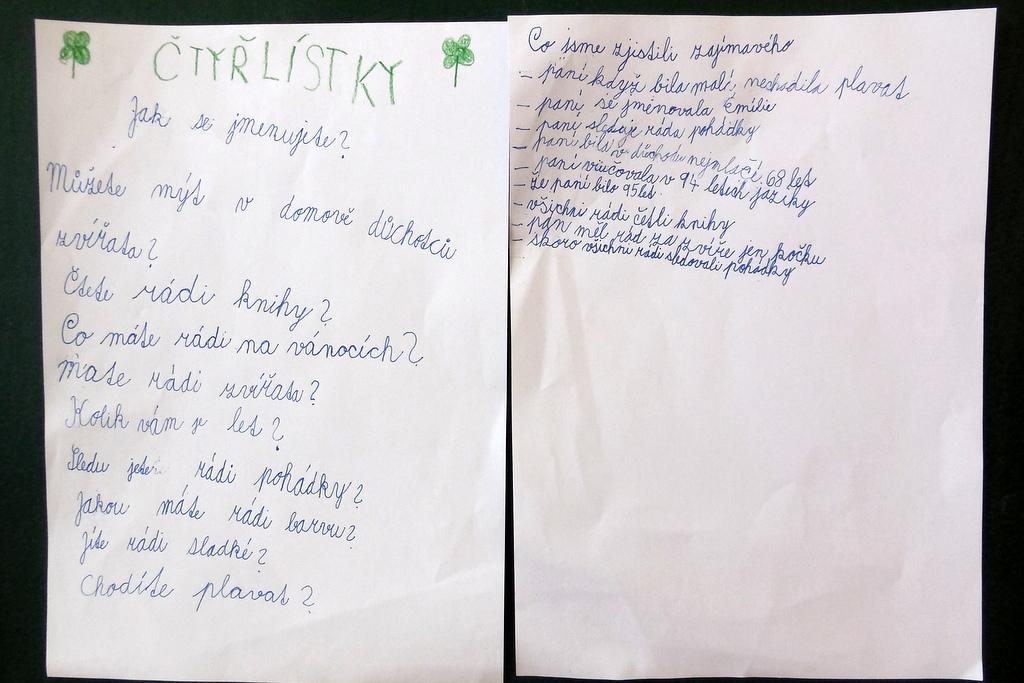 ČTYŘLÍSTKY
Jak se jmenujete?
Můžete mýt v domově důchotců
zvířata?
Čtete rádi knihy?
Co máte rádi na vánocích?
mate rádi zvířata?
Kolik vám je let?
Sledu jete rádi pohádky?
Jakou máte rádi barvu?
Jíte rádi sladké?
Chodíte plavat?
Co jsme zjistili zajímavého
– paní když bila malí, nechodila plavat
– paní se jménovala Emílie
– paní sleduje ráda pohádky
– paní bila v důchodu nejmlačí 68 let
– paní viučovala v 94 letech jaziky
– že paní bilo 95let
– všichni rádi četli knihy
– pan měl rád za zvíře jen kočku
– skoro všichni rádi sledovali pohádky